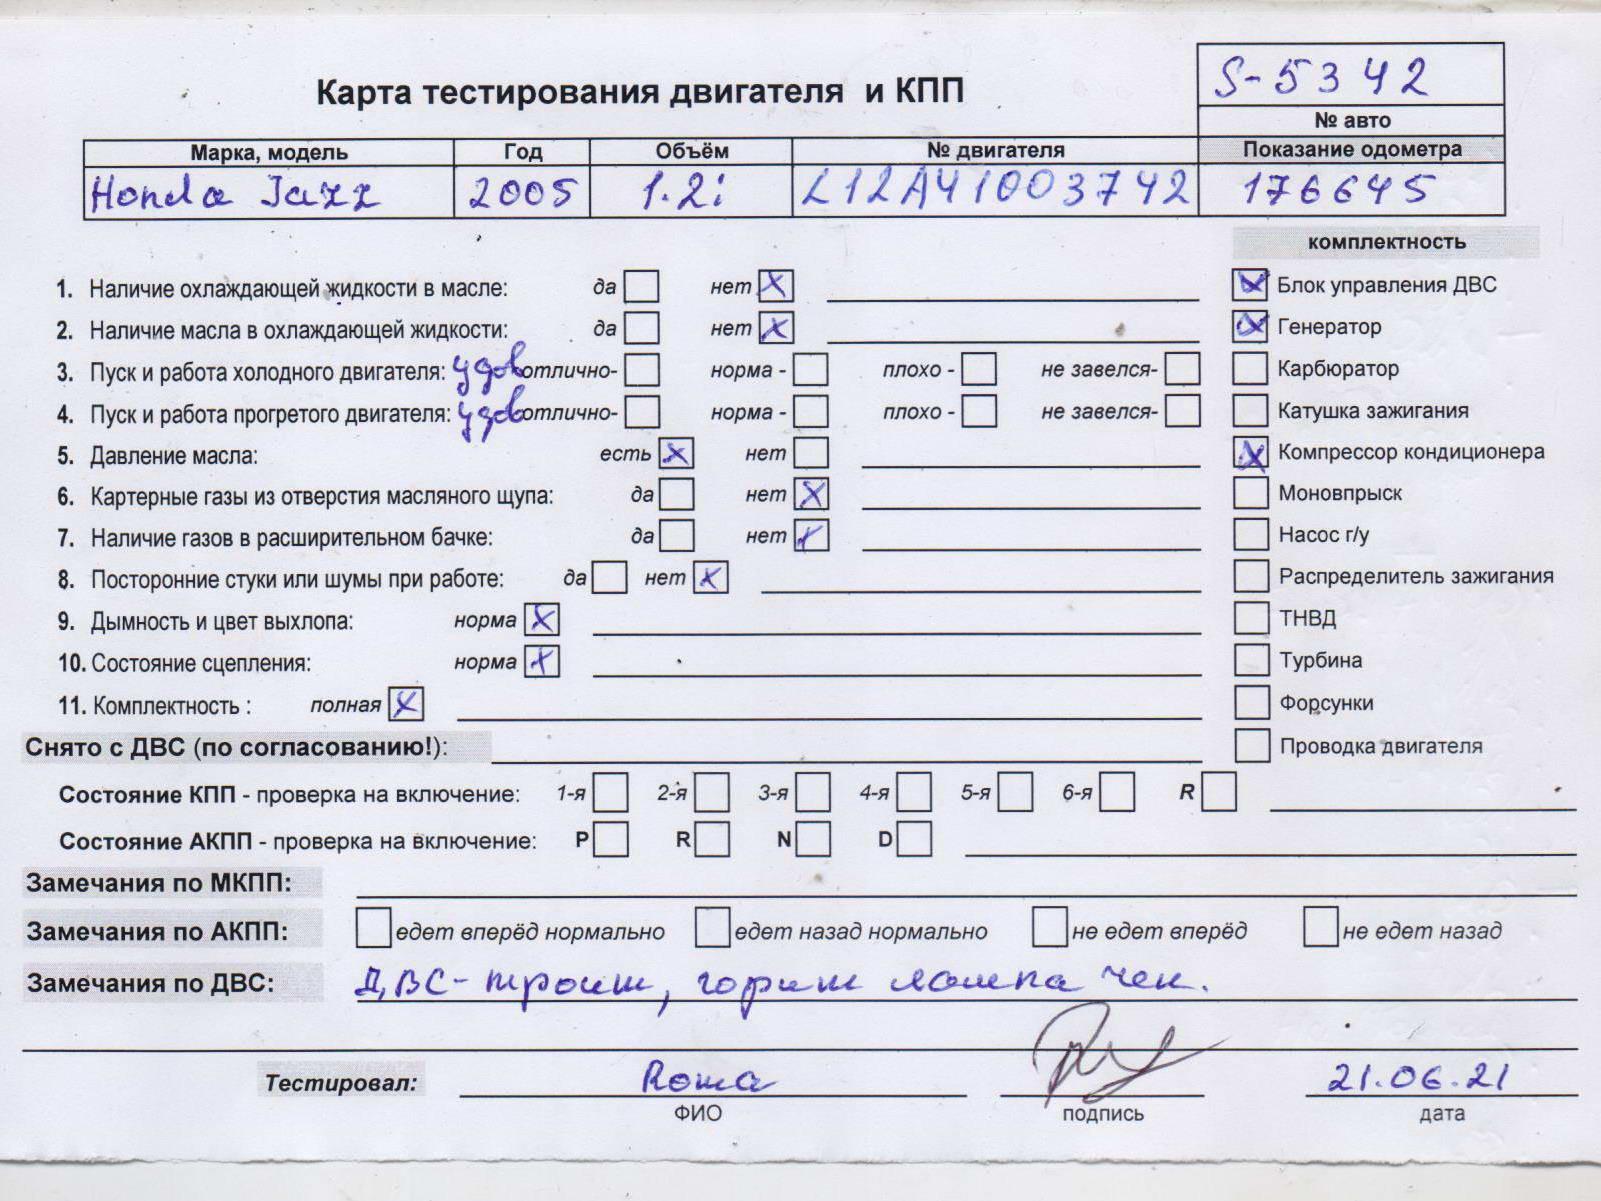 S-5342
Карта тестирования двигателя и КПП
№ авто
Марка, модель Год Объём № двигателя Показание одометра
Honda Jazz 2005 1.2i L12A41003742 176645
комплектность
1. Наличие охлаждающей жидкости в масле: да нет X Блок управления ДВС
2. Наличие масла в охлаждающей жидкости: да нет X Генератор
3. Пуск и работа холодного двигателя: удов отлично- норма - плохо - не завелся- Карбюратор
4. Пуск и работа прогретого двигателя: удов отлично- норма - плохо - не завелся- Катушка зажигания
5. Давление масла: есть X нет Компрессор кондиционера
6. Картерные газы из отверстия масляного щупа: да нет X Моновпрыск
7. Наличие газов в расширительном бачке: да нет X Насос г/у
8. Посторонние стуки или шумы при работе: да нет X Распределитель зажигания
9. Дымность и цвет выхлопа: норма X ТНВД
10. Состояние сцепления: норма X Турбина
11. Комплектность : полная X Форсунки
Снято с ДВС (по согласованию!): Проводка двигателя
Состояние КПП - проверка на включение: 1-я 2-я 3-я 4-я 5-я 6-я R
Состояние АКПП - проверка на включение: P R N D
Замечания по МКПП:
Замечания по АКПП: едет вперёд нормально едет назад нормально не едет вперёд не едет назад
Замечания по ДВС: ДВС- троит, горит лампа чек.
Тестировал: Рома 21.06.21
ФИО подпись дата